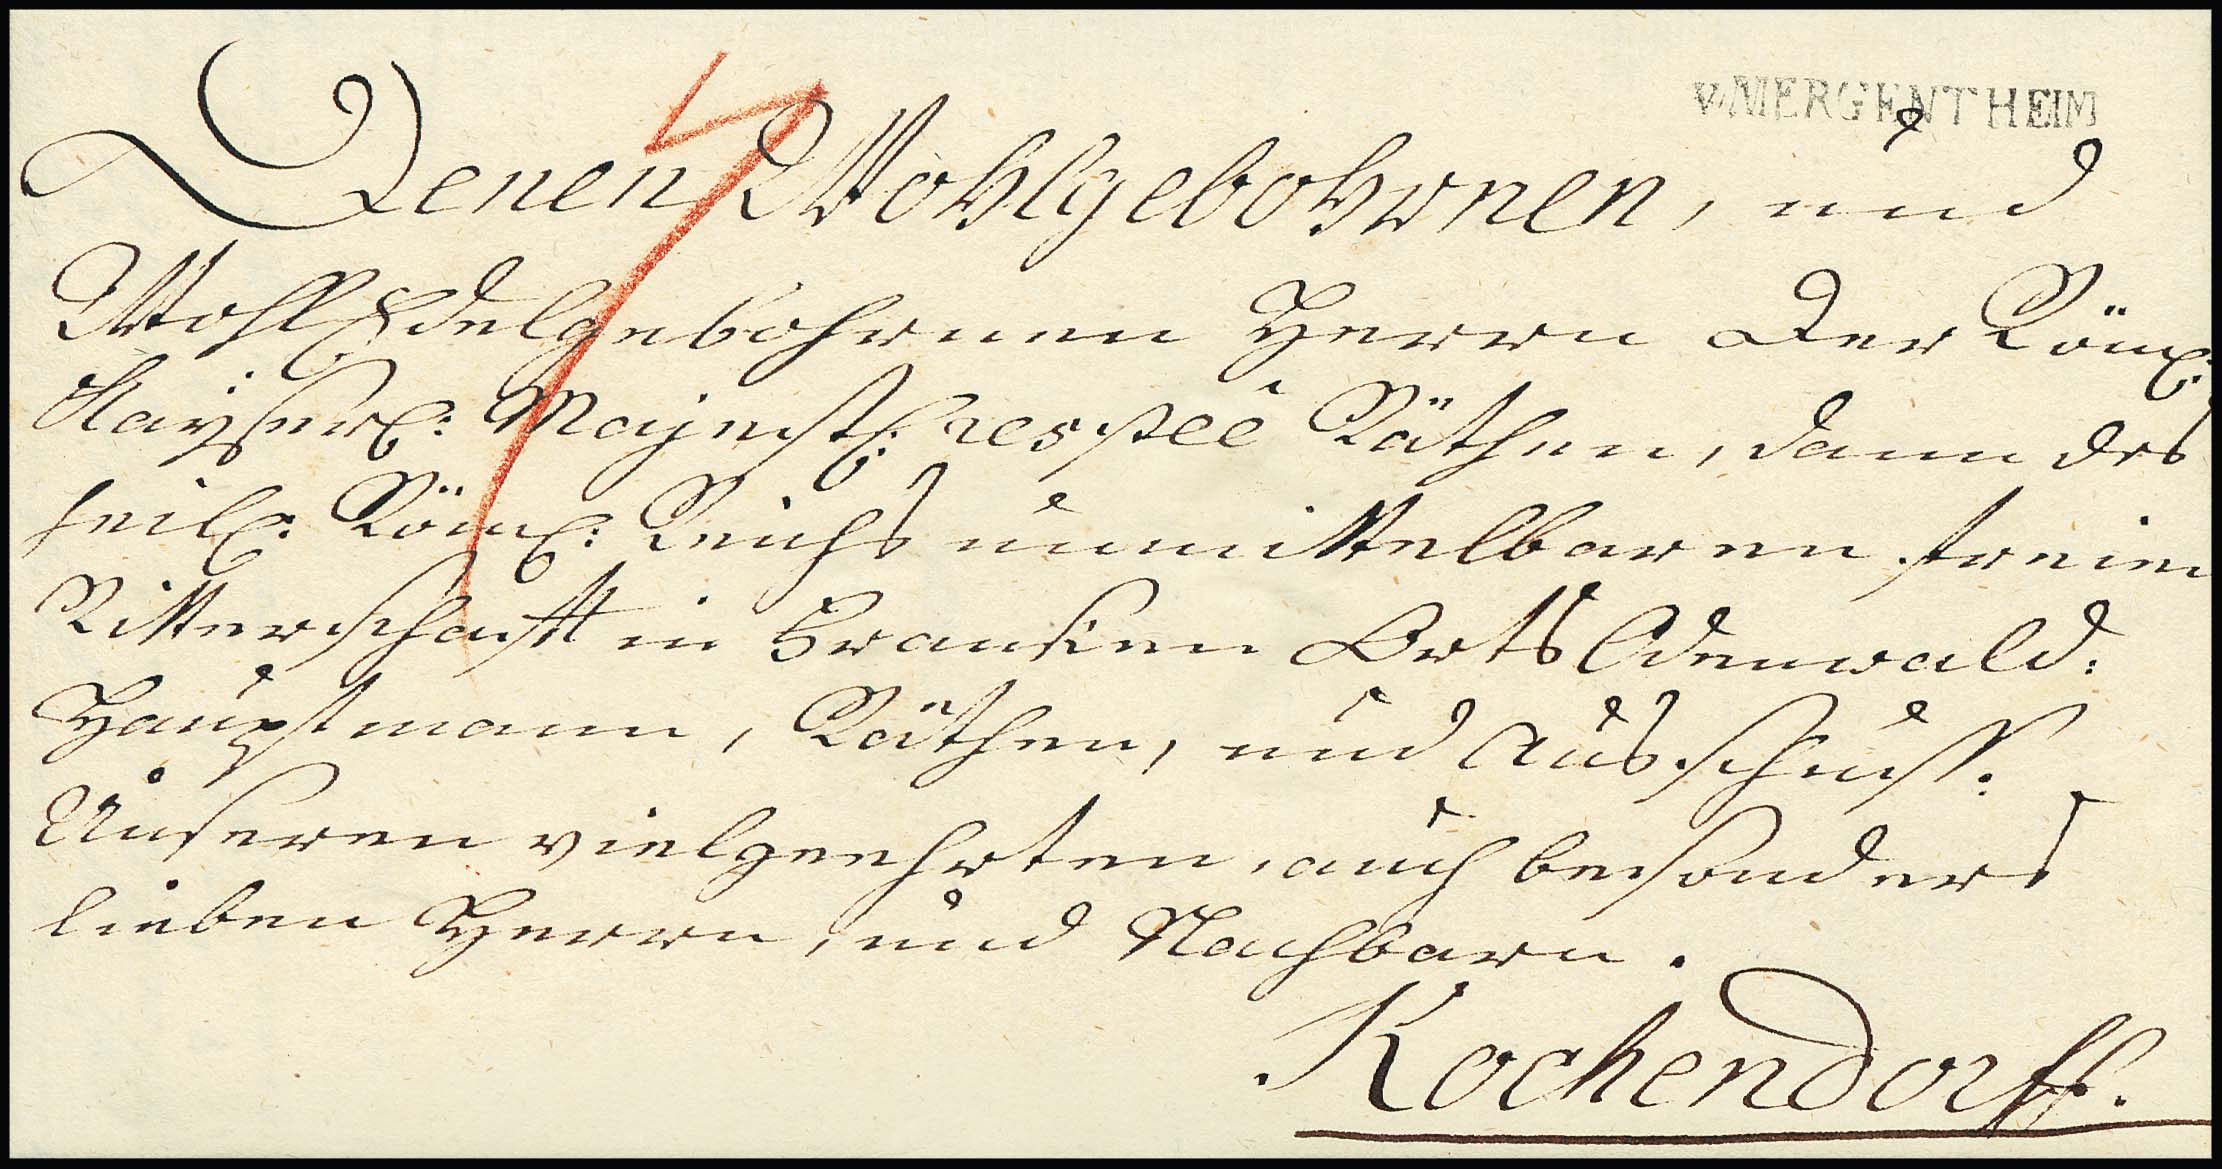 v. MERGENTHEIM
Denen Wohlgebohrnen, und
WohlEdelgebohrnen Herrn der Röm:
Kaÿserl: Majestl: respeè Räthen, dann des
heil: Röm: Reichs unmittelbaren freien
Ritterschafft in Franken Orts Odenwald:
Hauptmann, Räthen, und Ausschuss:
Unseren vielgeehrten, auch besonders
lieben Herrn, und Nachbarn.
Kochendorff.